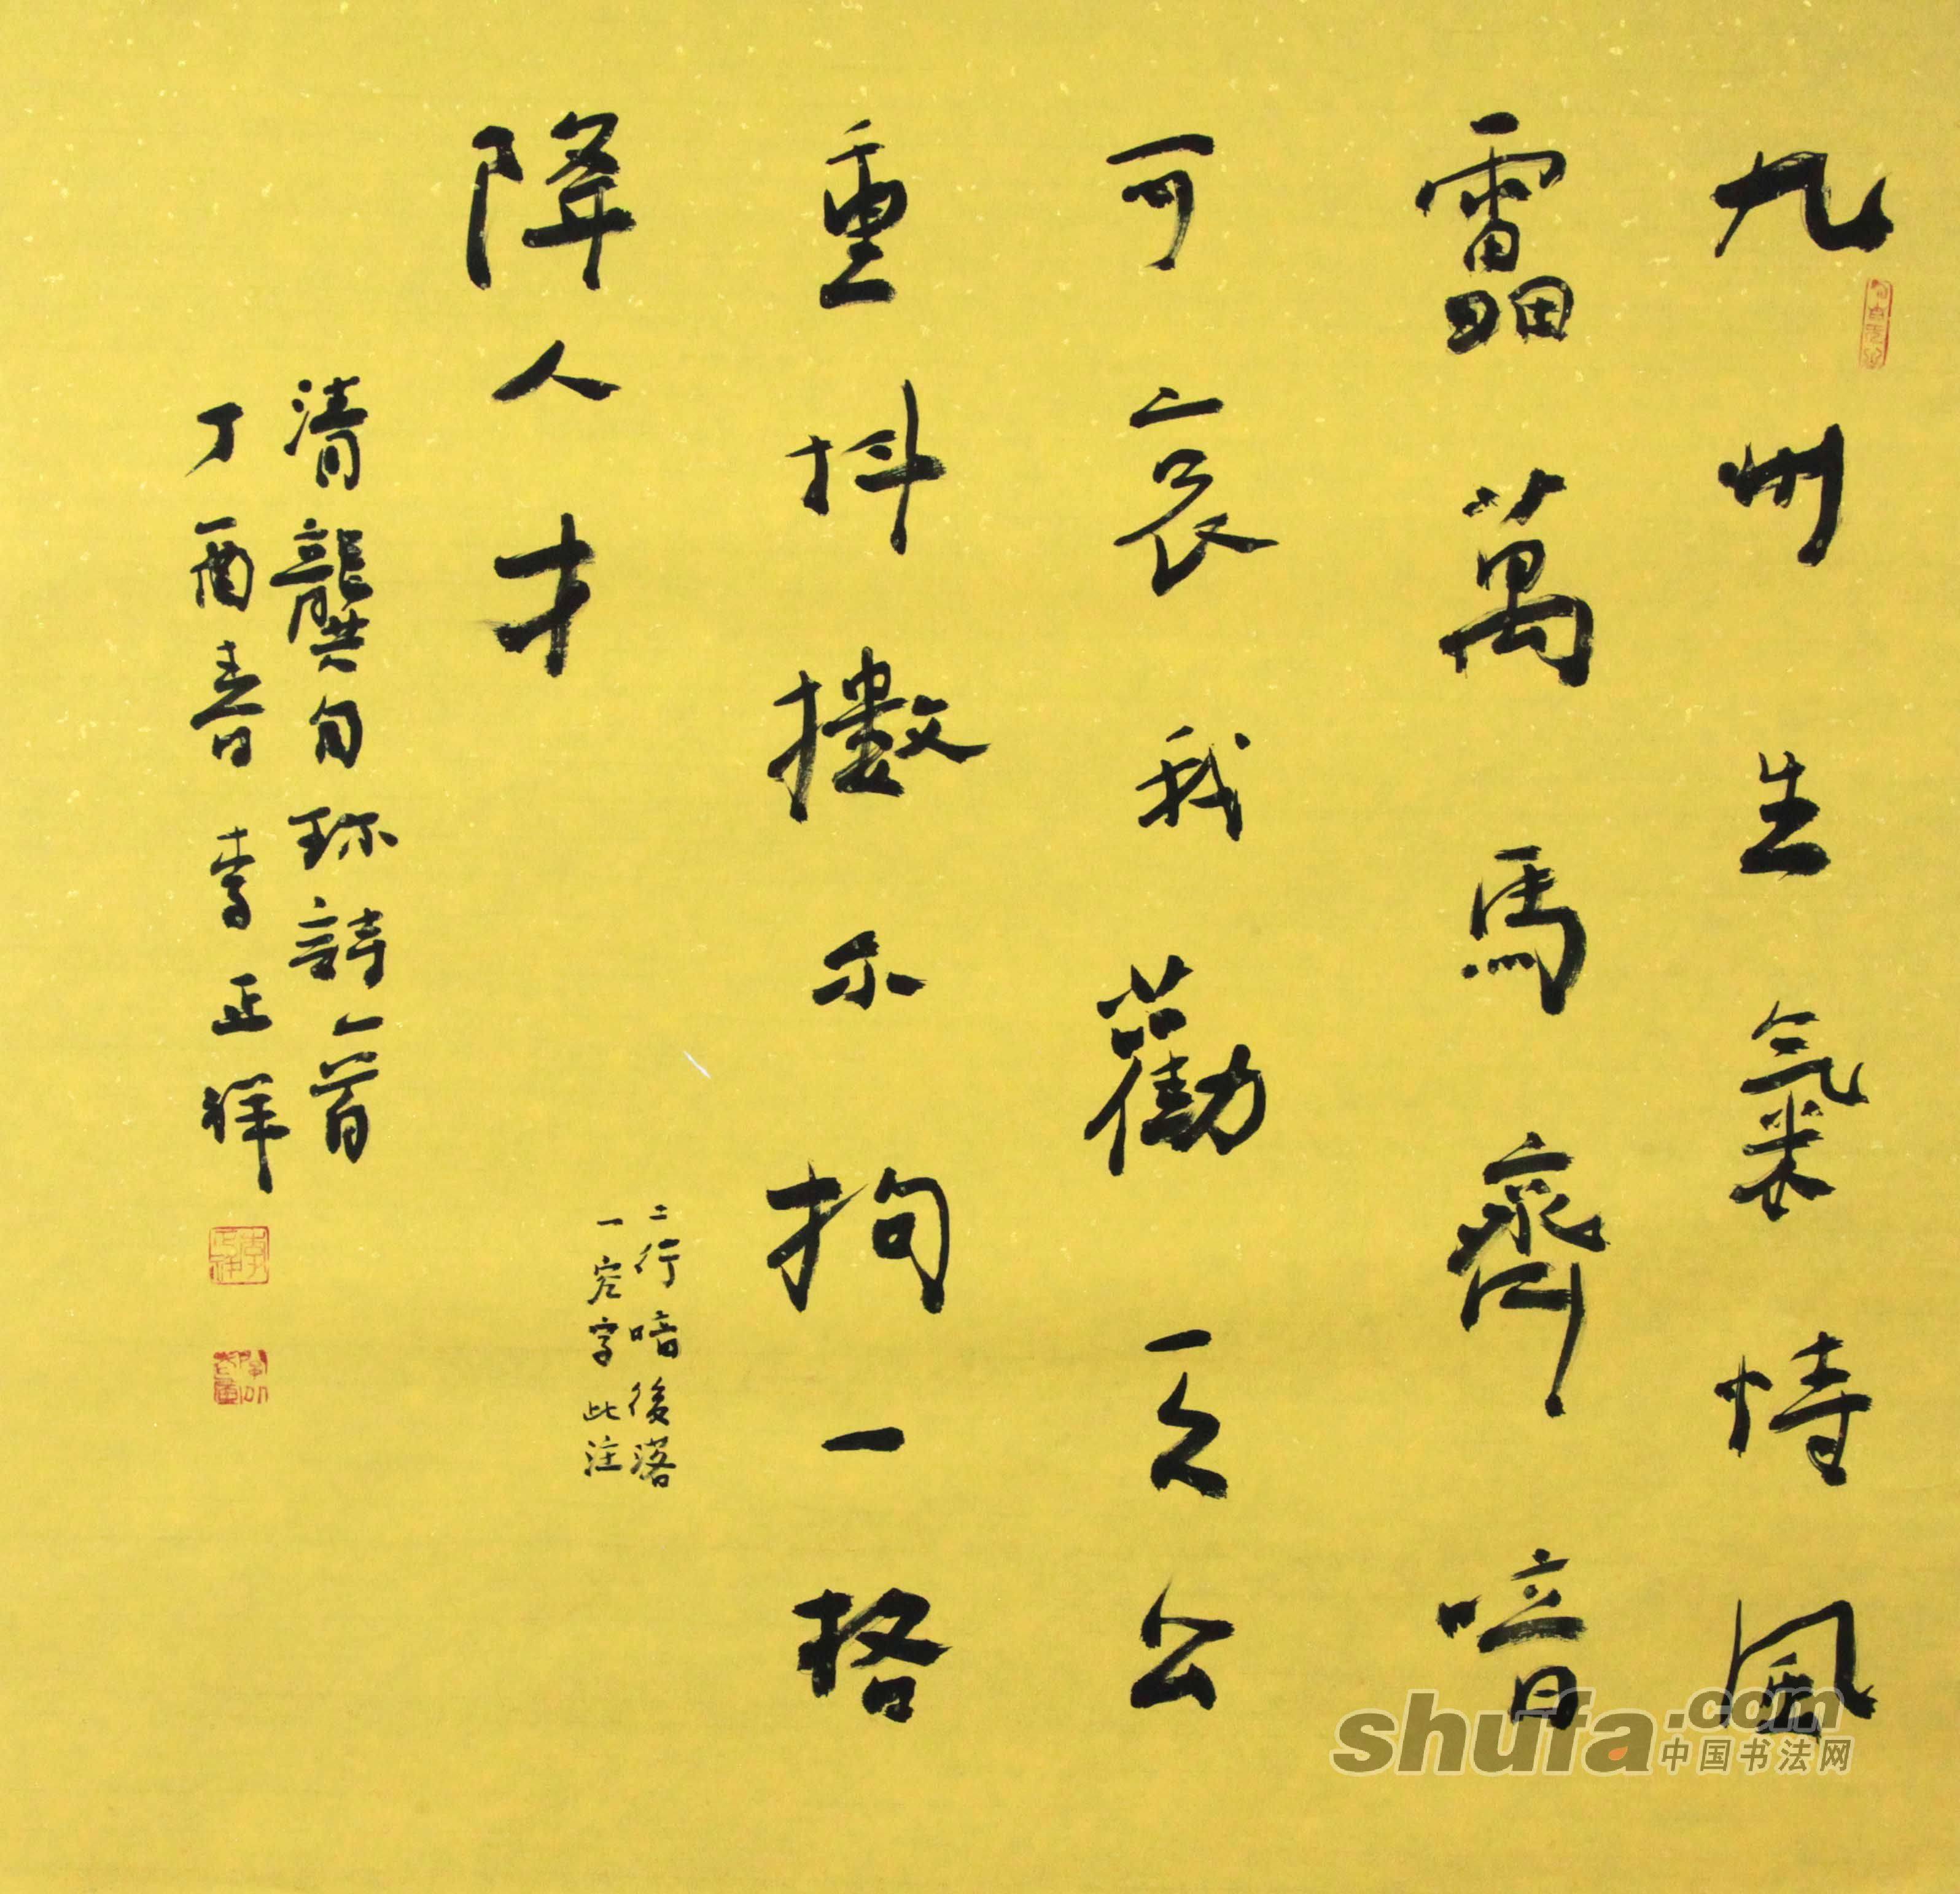 九州生氣恃風
靁萬馬齊喑
可哀我勸天公
重抖擻不拘一格
降人才
二行喑後落
一究字此注
清龔自珎詩一首
丁酉春李正祥
shufa.com
中国书法网